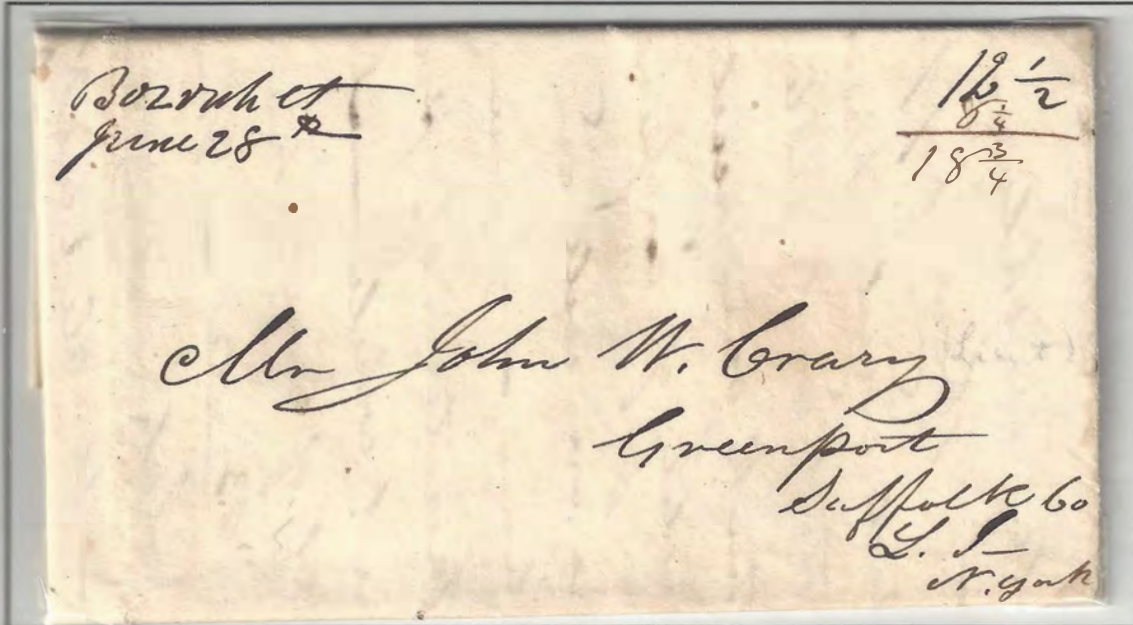 Bozrah ct
June 28th
12 1/2
6 1/4
18 3/4
Mr John W. Crary
Greenport
Suffolk Co
L. I
N. York